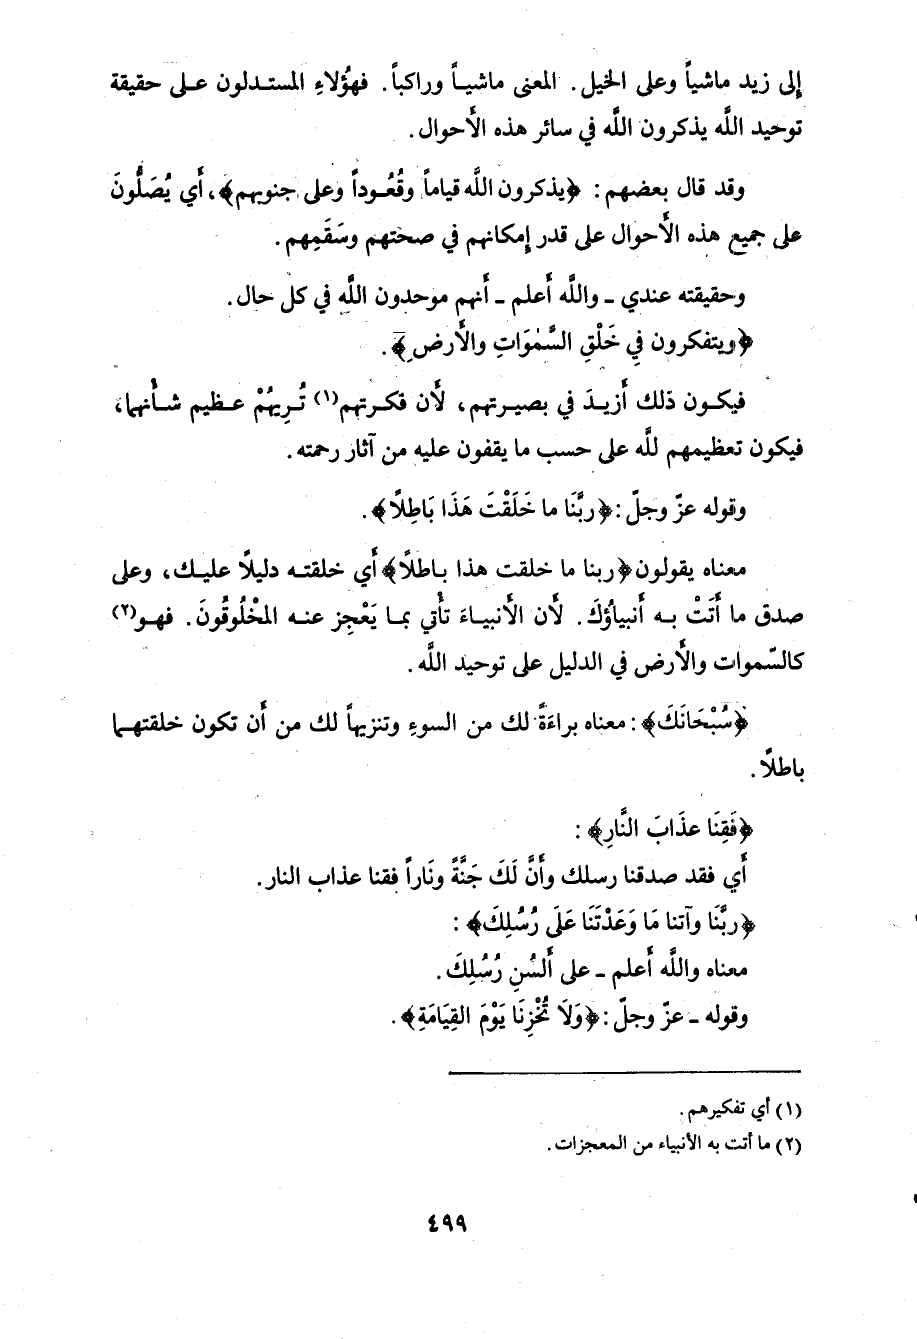 إلى زيد ماشياً وعلى الخيل. المعنى ماشياً وراكباً. فهؤلاءِ المستدلون على حقيقة
توحيد اللَّه يذكرون اللَّه في سائر هذه الأَحوال.
وقد قال بعضهم: ﴿يذكرون اللَّه قياماً وقُعُوداً وعلى جنوبهم﴾، أَي يُصَلُّونَ
على جميع هذه الأَحوال على قدر إمكانهم في صحتهم وسَقَمِهم.
وحقيقته عندي - واللَّه أَعلم - أَنهم موحدون اللَّه في كل حال.
﴿ويتفكرون فِي خَلْقِ السَّمٰوَاتِ والأَرضِ﴾.
فيكون ذلك أَزيدَ في بصيرتهم، لأَن فكرتهم(١) تُرِيهُمْ عظيم شأْنهما،
فيكون تعظيمهم للَّه على حسب ما يقفون عليه من آثار رحمته.
وقوله عزّ وجلّ: ﴿ربَّنَا ما خَلَقْتَ هَذَا بَاطِلًا﴾.
معناه يقولون ﴿ربنا ما خلقت هذا باطلًا﴾ أَي خلقته دليلًا عليك، وعلى
صدق ما أَتَتْ به أَنبياؤُكَ. لأَن الأَنبياءَ تأْتي بما يَعْجِز عنه المخْلُوقُونَ. فهو(٢)
كالسّموات والأَرض في الدليل على توحيد اللَّه.
﴿سُبْحَانَكَ﴾: معناه براءَةً لك من السوءِ وتنزيهاً لك من أَن تكون خلقتهما
باطلًا.
﴿فَقِنَا عذَابَ النَّارِ﴾:
أَي فقد صدقنا رسلك وأَنَّ لَكَ جَنَّةً ونَاراً فقنا عذاب النار.
﴿ربَّنَا وآتنا مَا وَعَدْتَنَا عَلَى رُسُلِكَ﴾:
معناه واللَّه أَعلم - على أَلسُنِ رُسُلِكَ.
وقوله - عزّ وجلّ: ﴿وَلَا تُخْزِنَا يَوْمَ القِيَامَةِ﴾.
(١) أي تفكيرهم.
(٢) ما أتت به الأنبياء من المعجزات.
٤٩٩